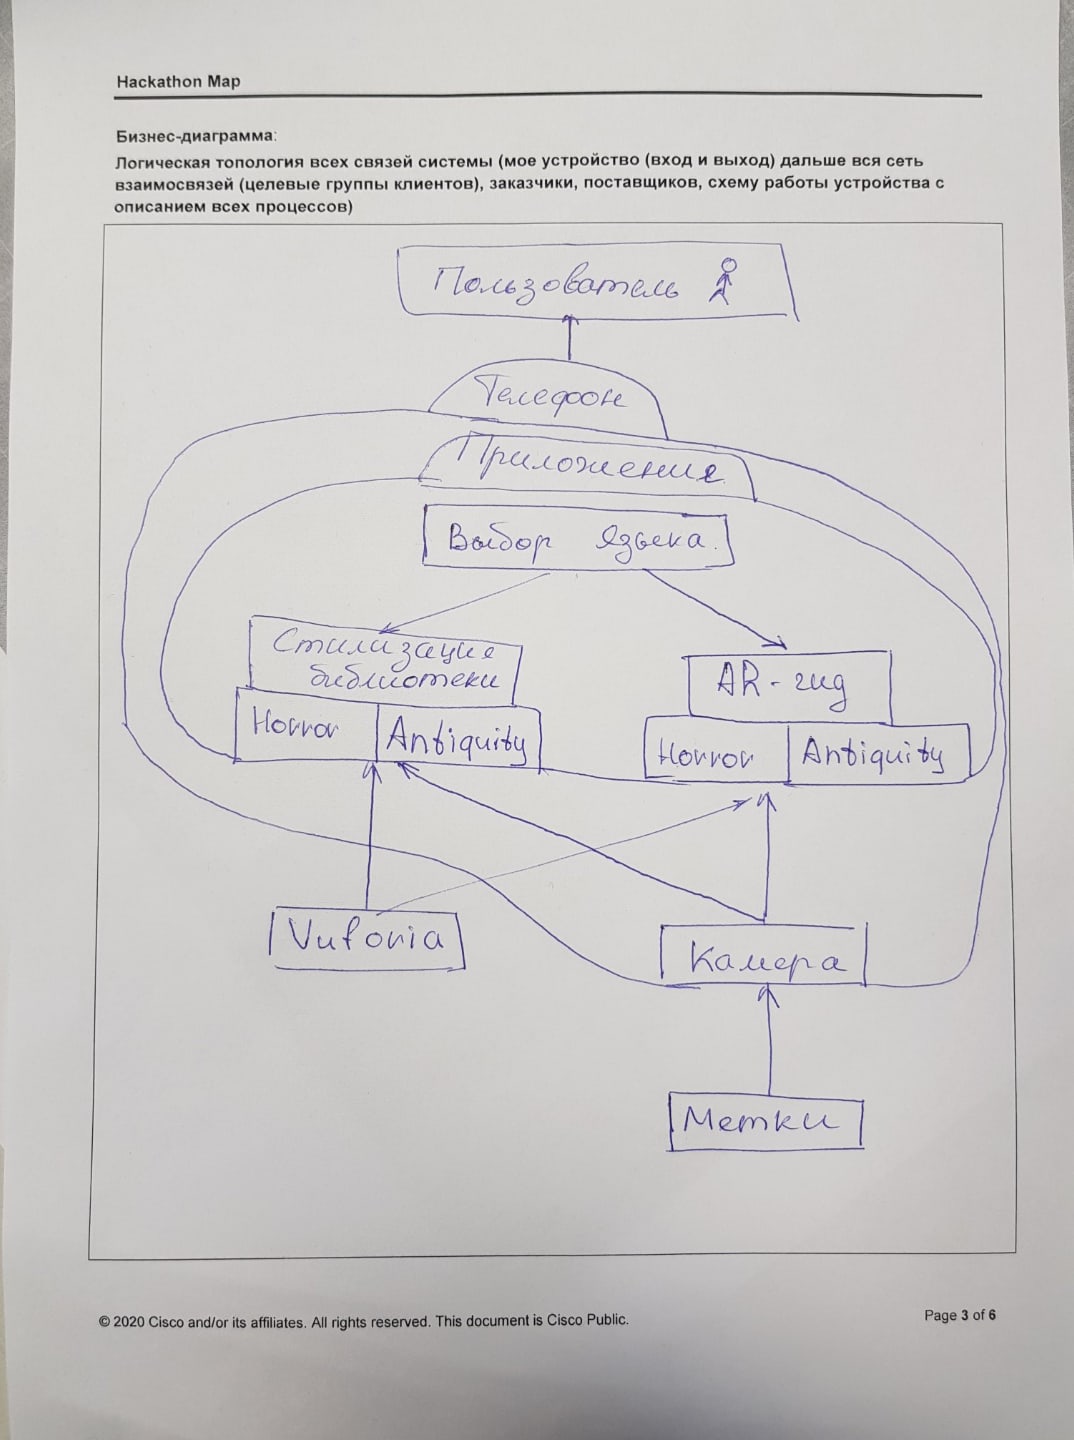 Hackathon Map
Бизнес-диаграмма:
Логическая топология всех связей системы (мое устройство (вход и выход) дальше вся сеть
взаимосвязей (целевые группы клиентов), заказчики, поставщиков, схему работы устройства с
описанием всех процессов)
Пользователь
Телефон
Приложение
Выбор языка.
Стилизация
библиотеки
Horror Antiquity
AR-гид
Horror Antiquity
Vuforia
Камера
Метки
© 2020 Cisco and/or its affiliates. All rights reserved. This document is Cisco Public.
Page 3 of 6